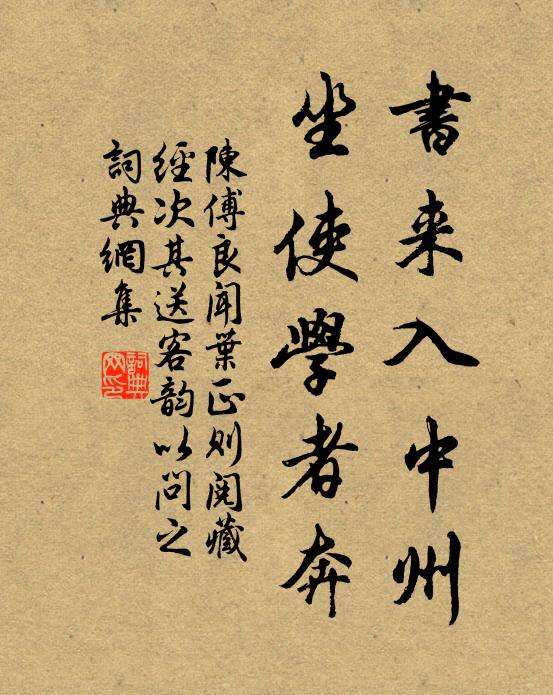 書来入中州
坐使學者奔
陳傅良聞葉正則閱藏
經次其送客韵以問之
詞典網集
詞典网印